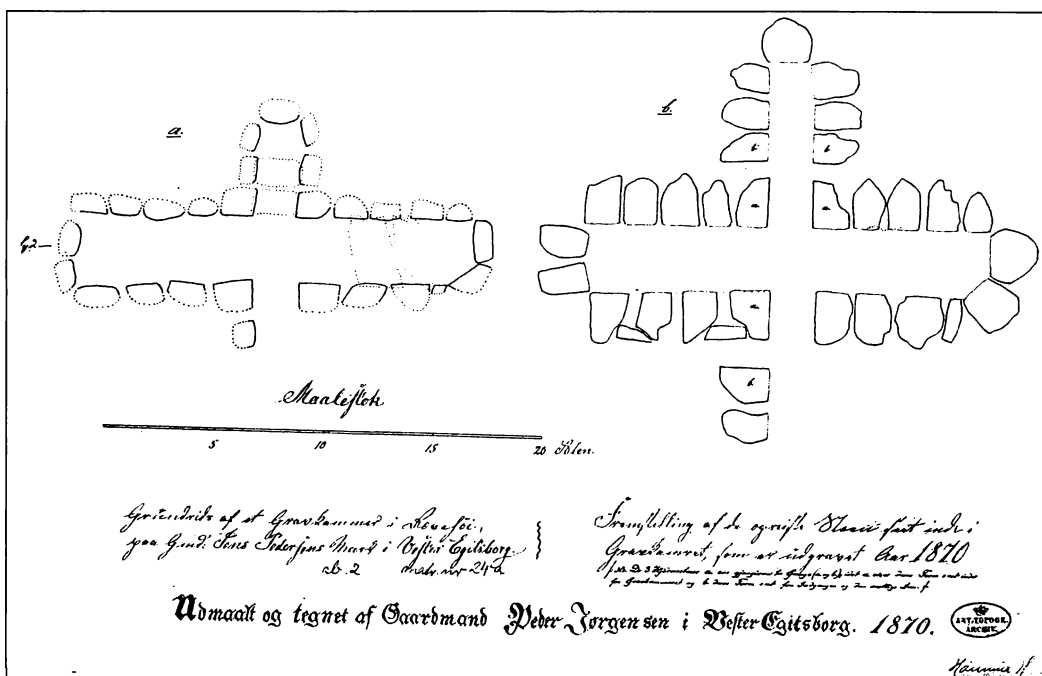 a.
b.
fig. 2
b
b
a
a
a
b
Maalestok
5
10
15
20 Alen.
Grundrids af et Gravkammer i Rævehøi,
paa Gmd. Jens Pedersens Mark i Vester Egitsborg.
ab. 2 matr. nr 24a
Fremstilling af de opreiste Stene seet inde i
Gravkamret, som er udgravet Aar 1870
Udmaalt og tegnet af Gaardmand Peder Jørgensen i Vester Egitsborg. 1870.
ANT. TOPOGR.
ARCHIV.